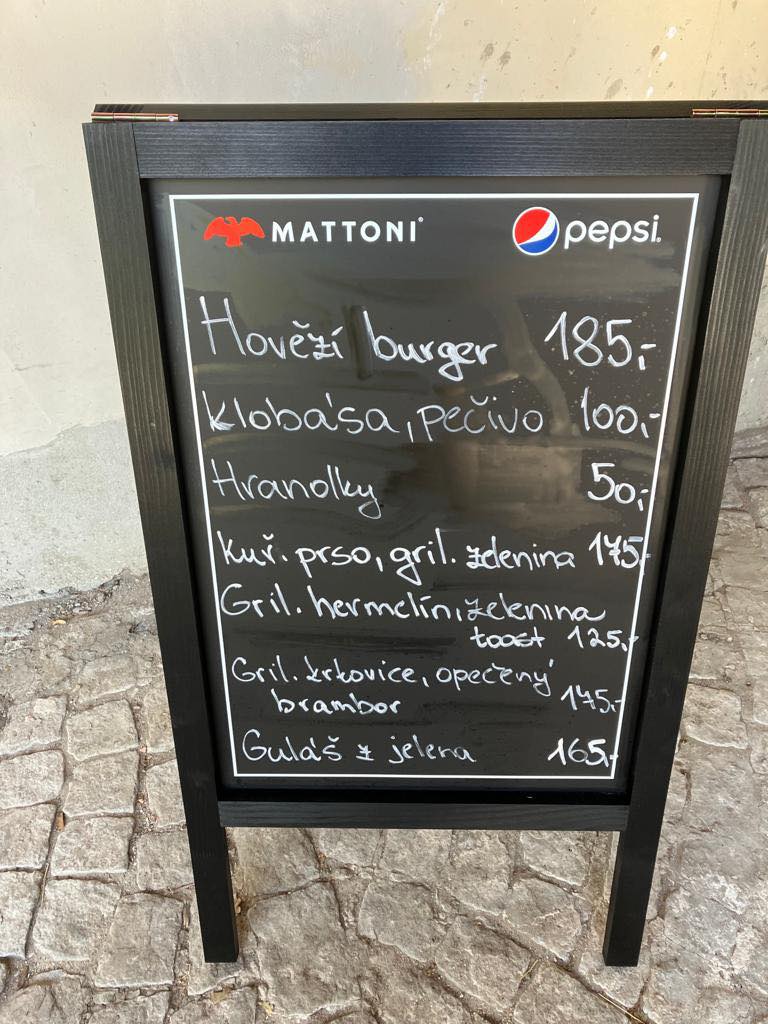 MATTONI® pepsi®
Hovězí burger 185,-
klobása, pečivo 100,-
Hranolky 50,-
Kuř. prso, gril. zelenina 175,-
Gril. hermelín, zelenina
toast 125,-
Gril. krkovice, opečený
brambor 175,-
Guláš z jelena 165,-